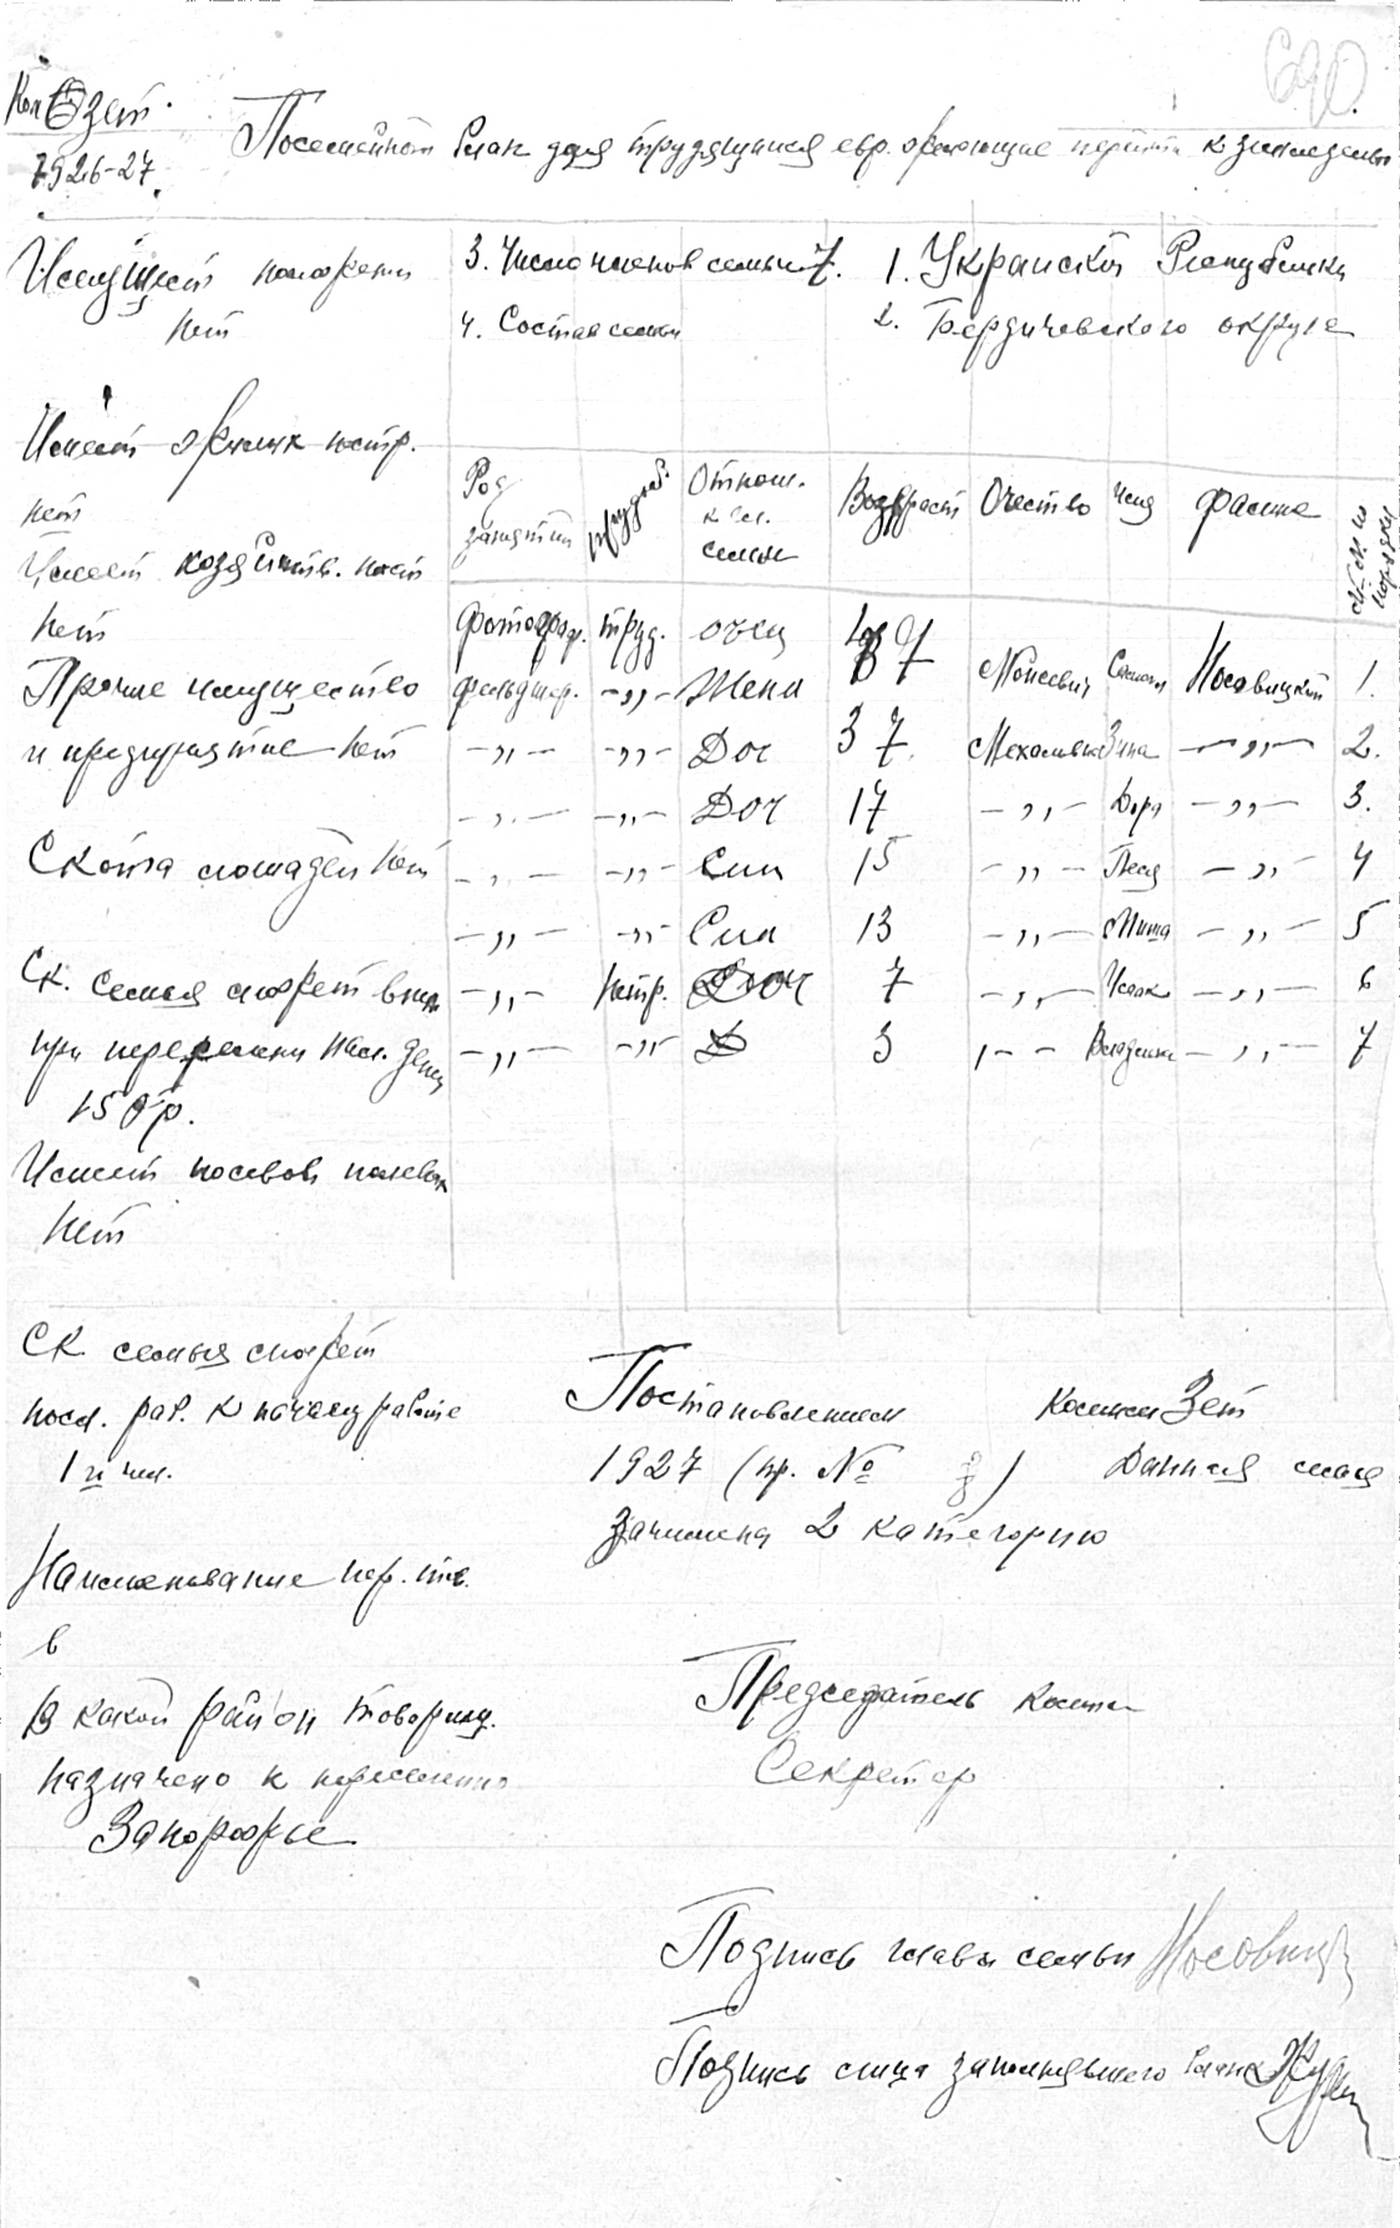 690.
Ком Озет.
1926-27
Посемейной бланк для трудящихся евр. желающие перейти к земледелью
Имущест положени
нет
3. Число членов семьи 7.
4. Состав семьи
1. Украиской Республики
2. Бердичевского округа
Имеет жилих постр.
нет
Имеет хозяйств. пост
нет
Прочие имущество
и предприятие нет
Скота лошадей нет
Ск. семья может внти
при переселени нал. денег
150 р.
Имеет посевов полевых
нет
Род занятий трудосп. Отнош. к гл. семьи Возраст Очество Имя Фамил № № по порядку
Фотограф. труд. отец 47 Моисеевич Соломон Носовицкий 1.
фельдшер. -"- Жена 37 Зина -"- 2.
-"- -"- Доч 17 -"- Дора -"- 3.
-"- -"- Доч 15 -"- Песя -"- 4
-"- -"- Сын 13 -"- Миша -"- 5
-"- нетр. Сын 7 -"- Исаак -"- 6
-"- -"- 3 -"- Володимир -"- 7
СК семья может
посл. раб. к началу работе
1 й чел.
Наименование пер. тов.
в
В какой район товарищ.
назначено к переселению
Запорожье
Постановлением Комиси Зет
1927 (пр. № 8) Данная семя
Зачислена 2 категорию
Председатель Комис
Секретар
Подпись главы семьи Носовицк
Подпись лица заполнявшего бланк